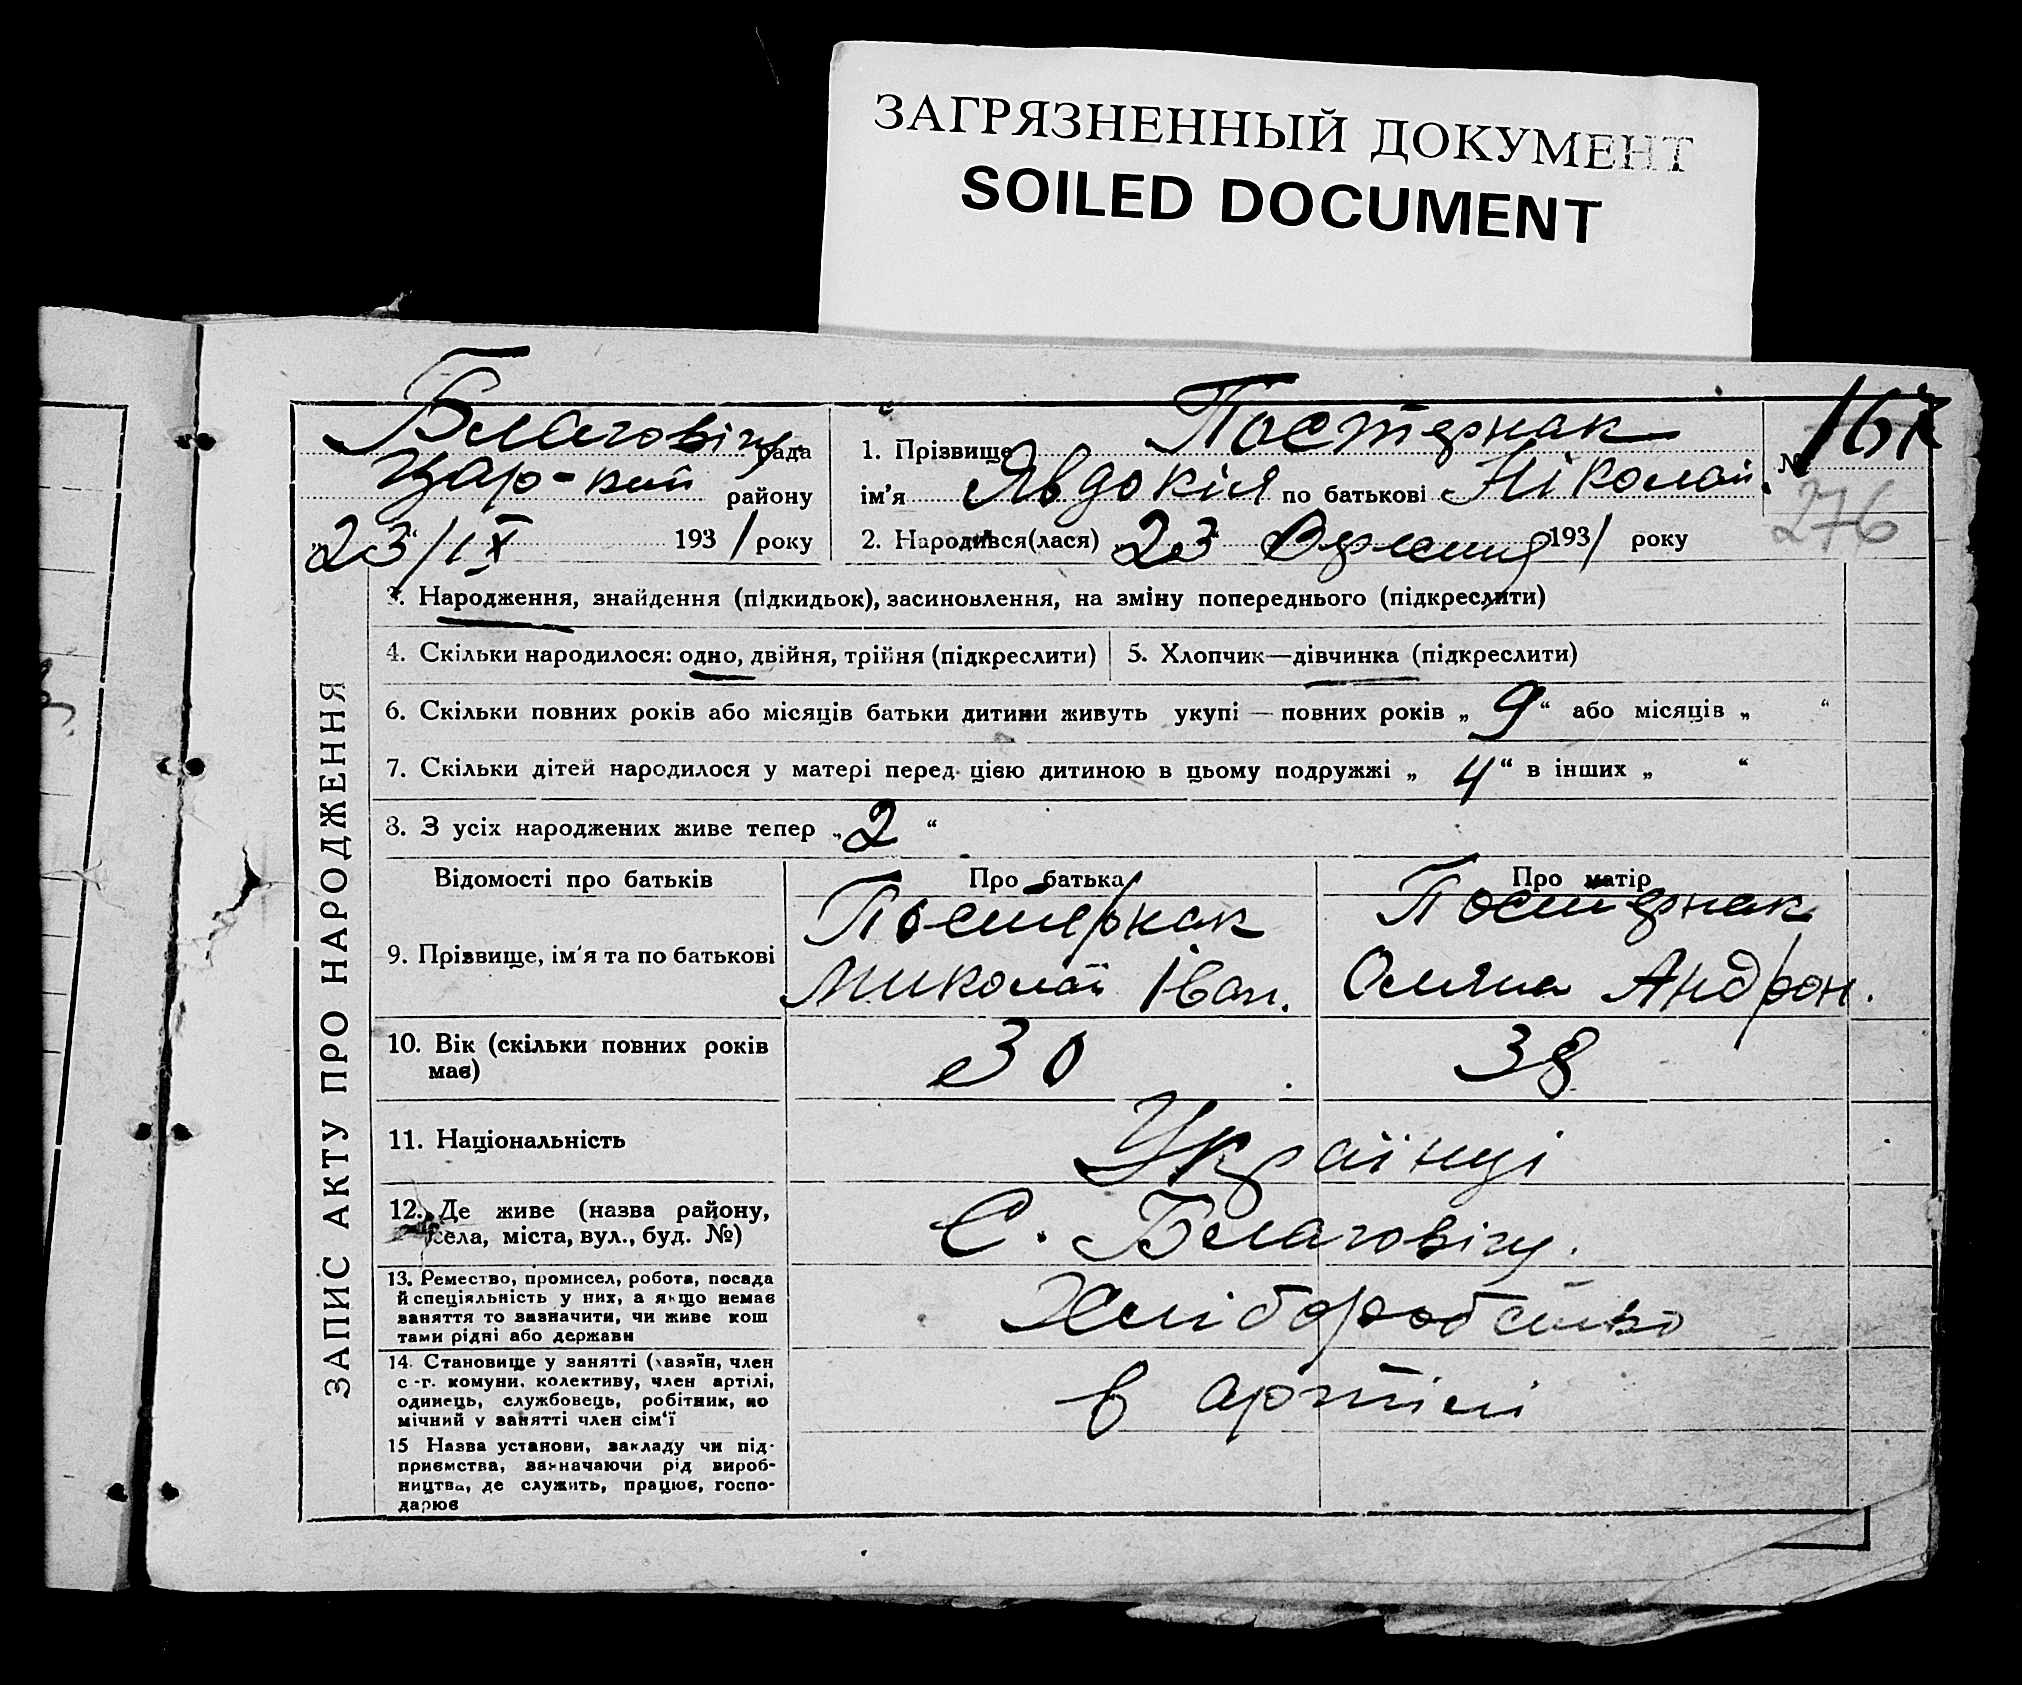 ЗАГРЯЗНЕННЫЙ ДОКУМЕНТ
SOILED DOCUMENT
Благовіщ. рада
Цар-кий району
„23“/IX 1931 року
1. Прізвище Постернак
ім’я Явдокія по батькові Ніколай.
№ 167
276
2. Народився(лася) 23 Вересня 1931 року
ЗАПИС АКТУ ПРО НАРОДЖЕННЯ
3. Народження, знайдення (підкидьок), засиновлення, на зміну попереднього (підкреслити)
4. Скільки народилося: одно, двійня, трійня (підкреслити)
5. Хлопчик—дівчинка (підкреслити)
6. Скільки повних років або місяців батьки дитини живуть укупі — повних років „ 9 “ або місяців „ “
7. Скільки дітей народилося у матері перед цією дитиною в цьому подружжі „ 4 “ в інших „ “
8. З усіх народжених живе тепер „ 2 “
Відомості про батьків
Про батька
Про матір
9. Прізвище, ім’я та по батькові
Постернак
Миколай Іван.
Постернак
Оляна Андрон.
10. Вік (скільки повних років
має)
30
38
11. Національність
Українці
12. Де живе (назва району,
села, міста, вул., буд. №)
С. Благовіщ.
13. Ремество, промисел, робота, посада
й спеціяльність у них, а якщо немає
заняття то зазначити, чи живе кош
тами рідні або держави
Хліборобство
14. Становище у занятті (хазяїн, член
с.-г. комуни, колективу, член артілі,
одинець, службовець, робітник, по
мічний у занятті член сім‘ї
в артілі
15 Назва установи, закладу чи під-
приємства, зазначаючи рід вироб-
ництва, де служить, працює, госпо-
дарює